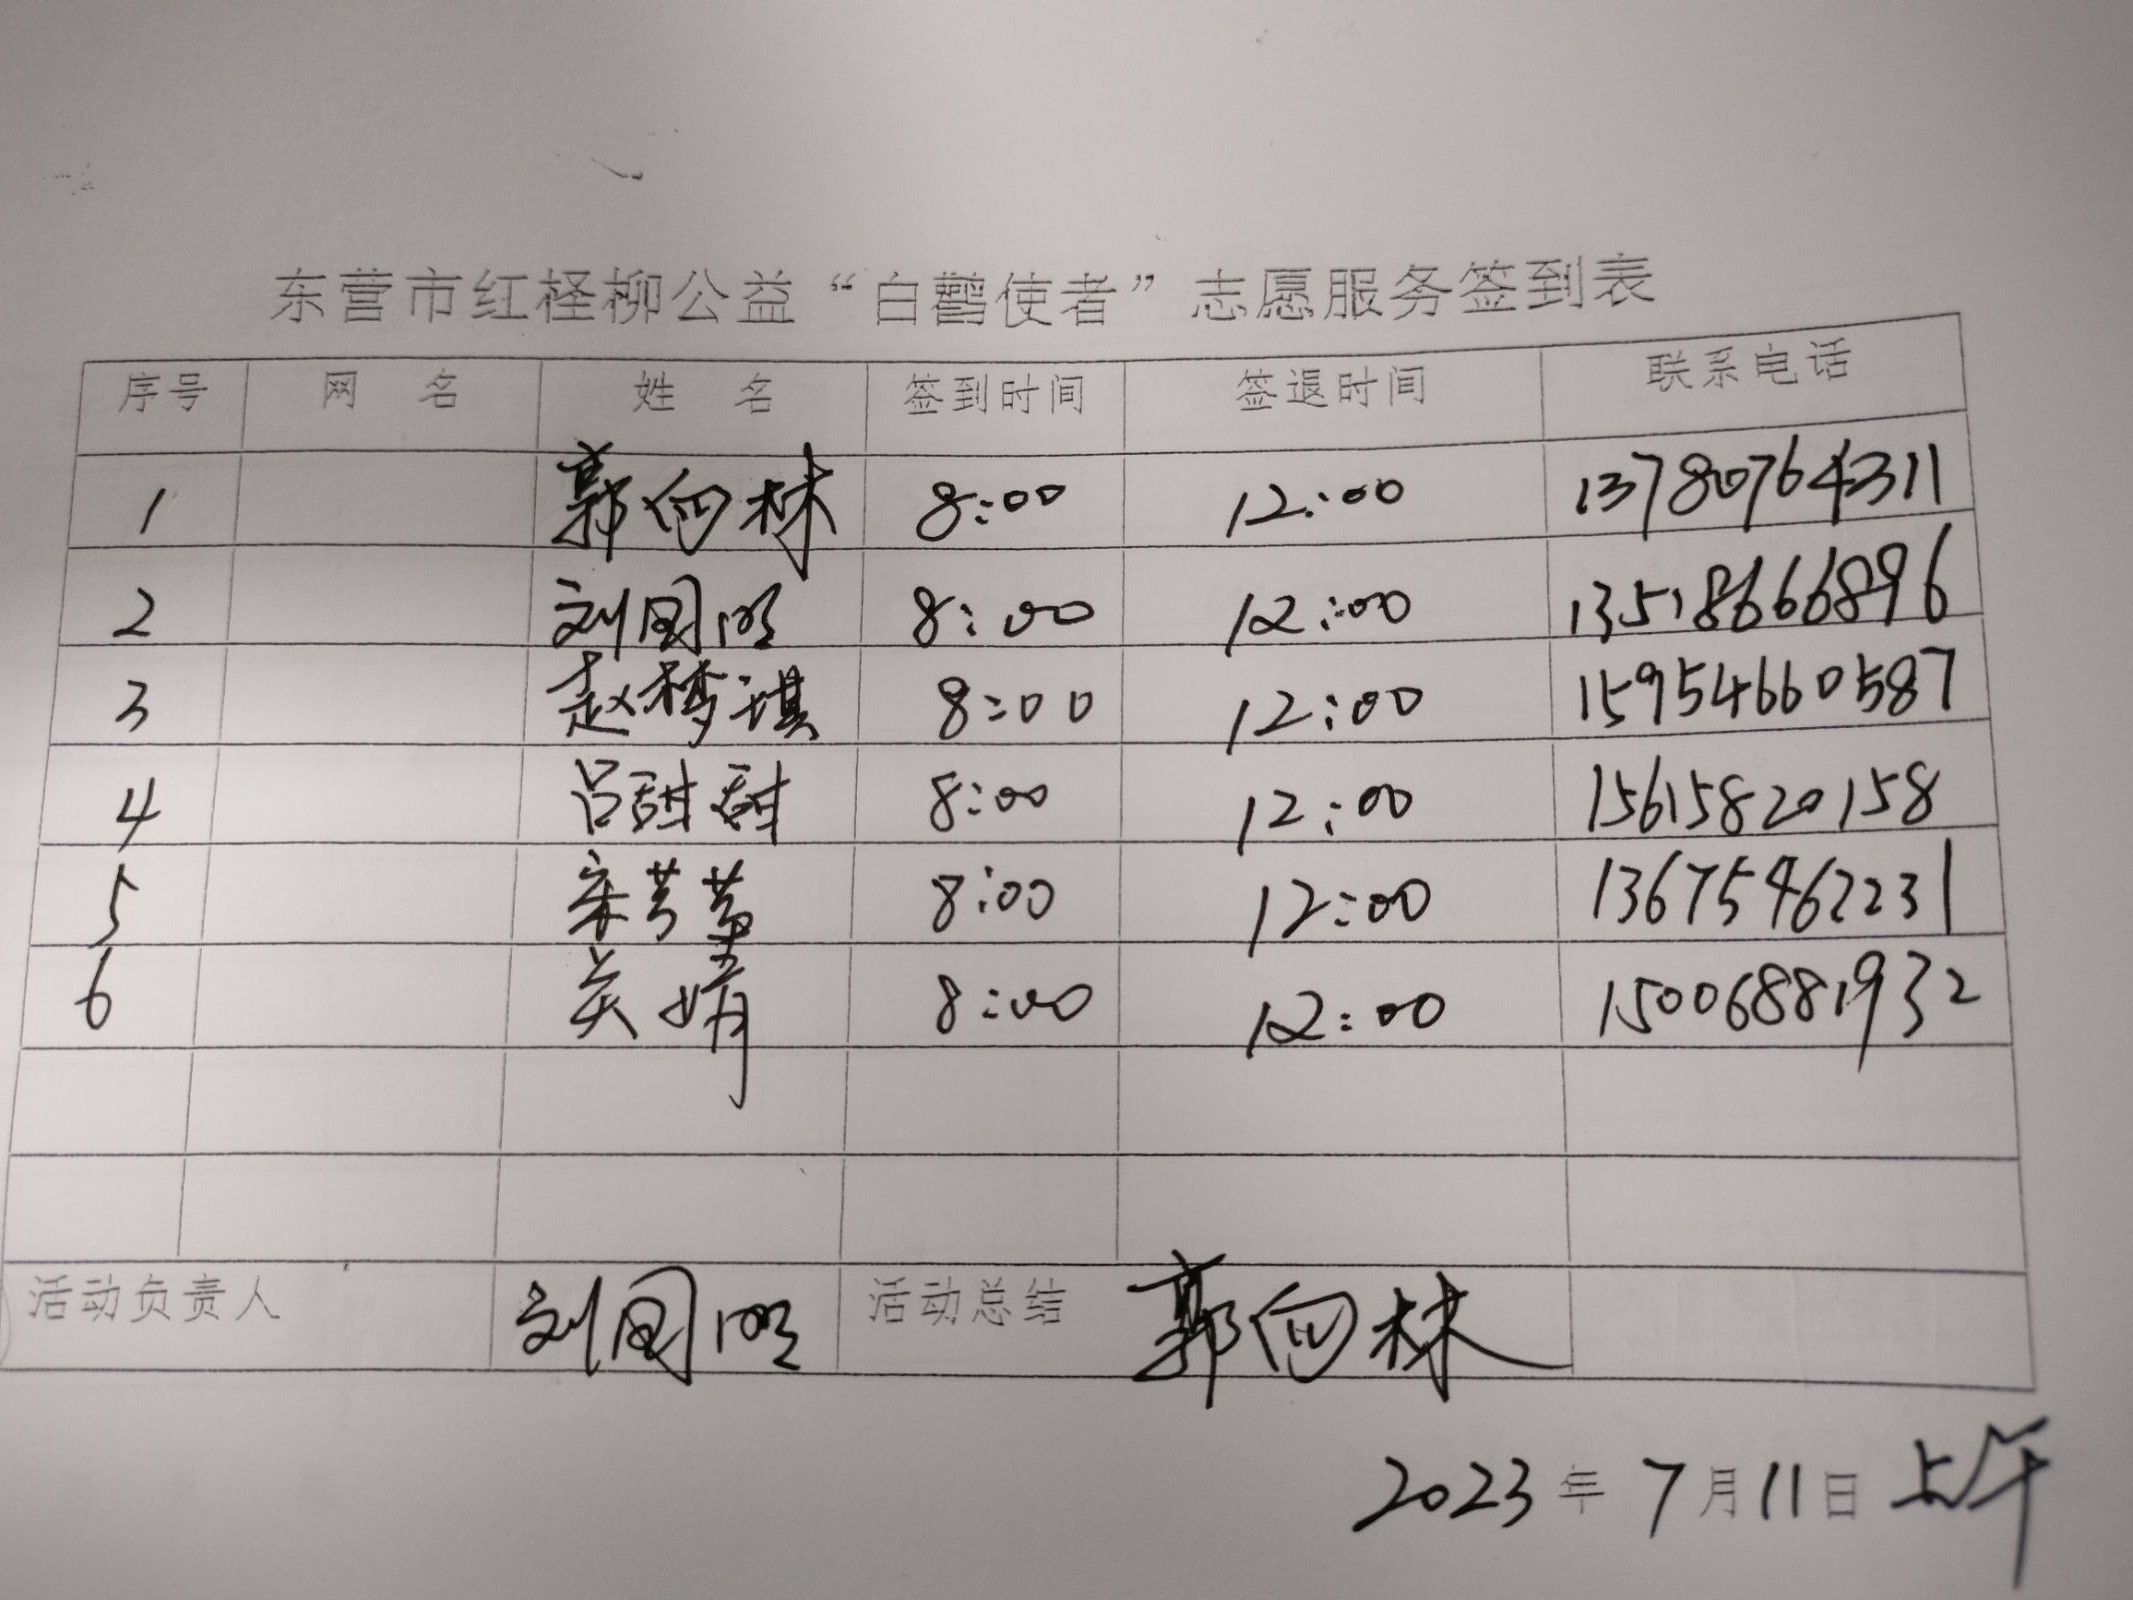 东营市红柽柳公益“白鹳使者”志愿服务签到表
序号 网 名 姓 名 签到时间 签退时间 联系电话
1 郭向林 8:00 12:00 13780764311
2 刘国明 8:00 12:00 13518666896
3 赵梦琪 8:00 12:00 15954660587
4 吕甜甜 8:00 12:00 15615820158
5 宋芳芳 8:00 12:00 13675462231
6 吴婧 8:00 12:00 15006881932
活动负责人 刘国明 活动总结 郭向林
2023年7月11日上午